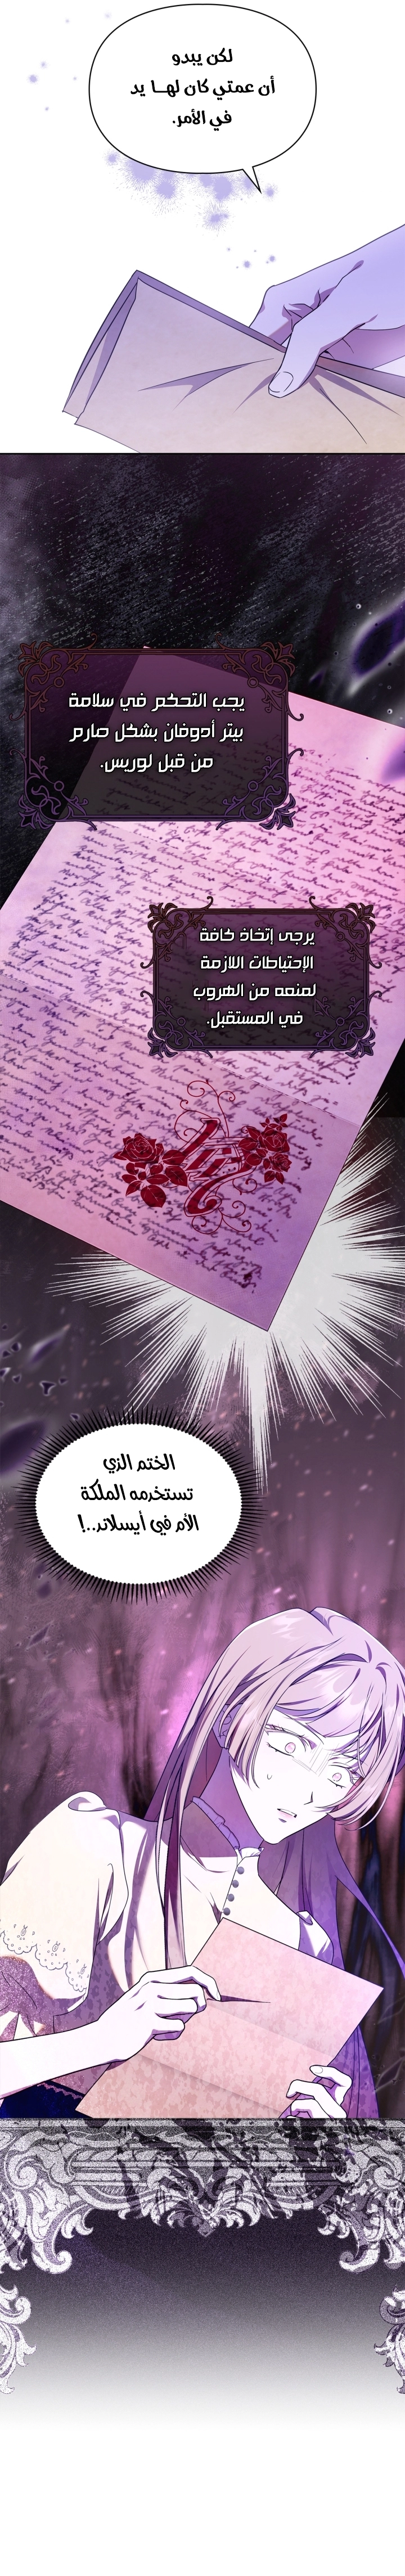 لكن يبدو
أن عمتي كان لهــا يد
في الأمر.
يجب التحكم في سلامة
بيتر أدوفان بشكل صارم
من قبل لوريس.
يرجى إتخاذ كافة
الإحتياطات اللازمة
لمنعه من الهروب
في المستقبل.
الختم الذي
تستخدمه الملكة
الأم في أيسلاند..!